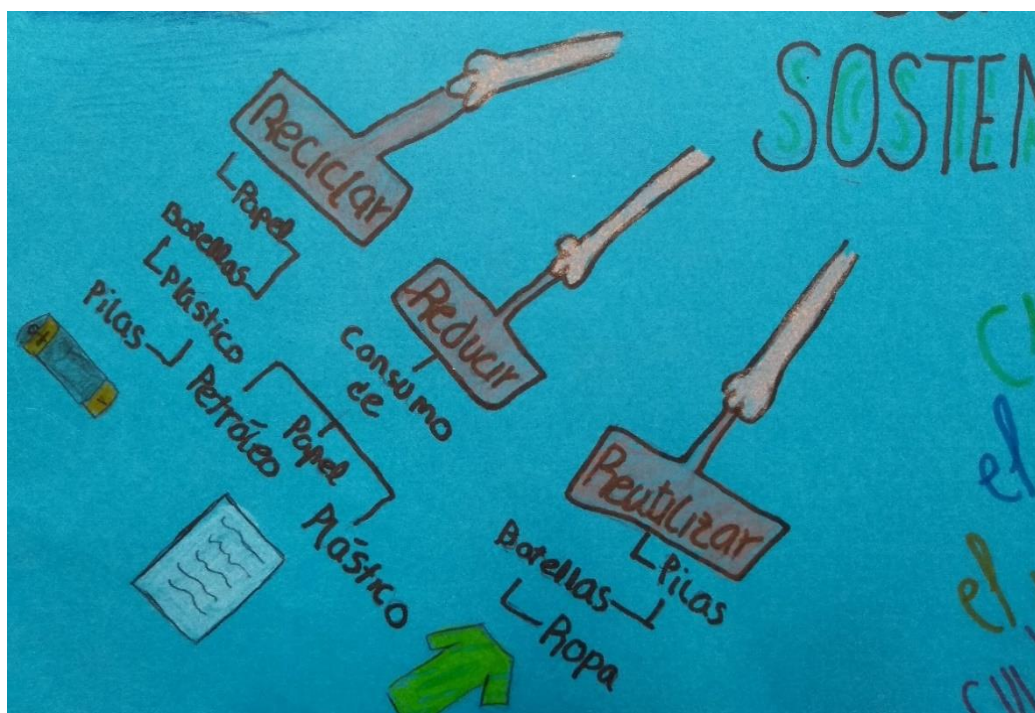 SOSTEN
Reciclar
Papel
Botellas
Plástico
Pilas
Reducir
Consumo
de
Petróleo
Papel
Plástico
Reutilizar
Pilas
Botellas
Ropa
el
el